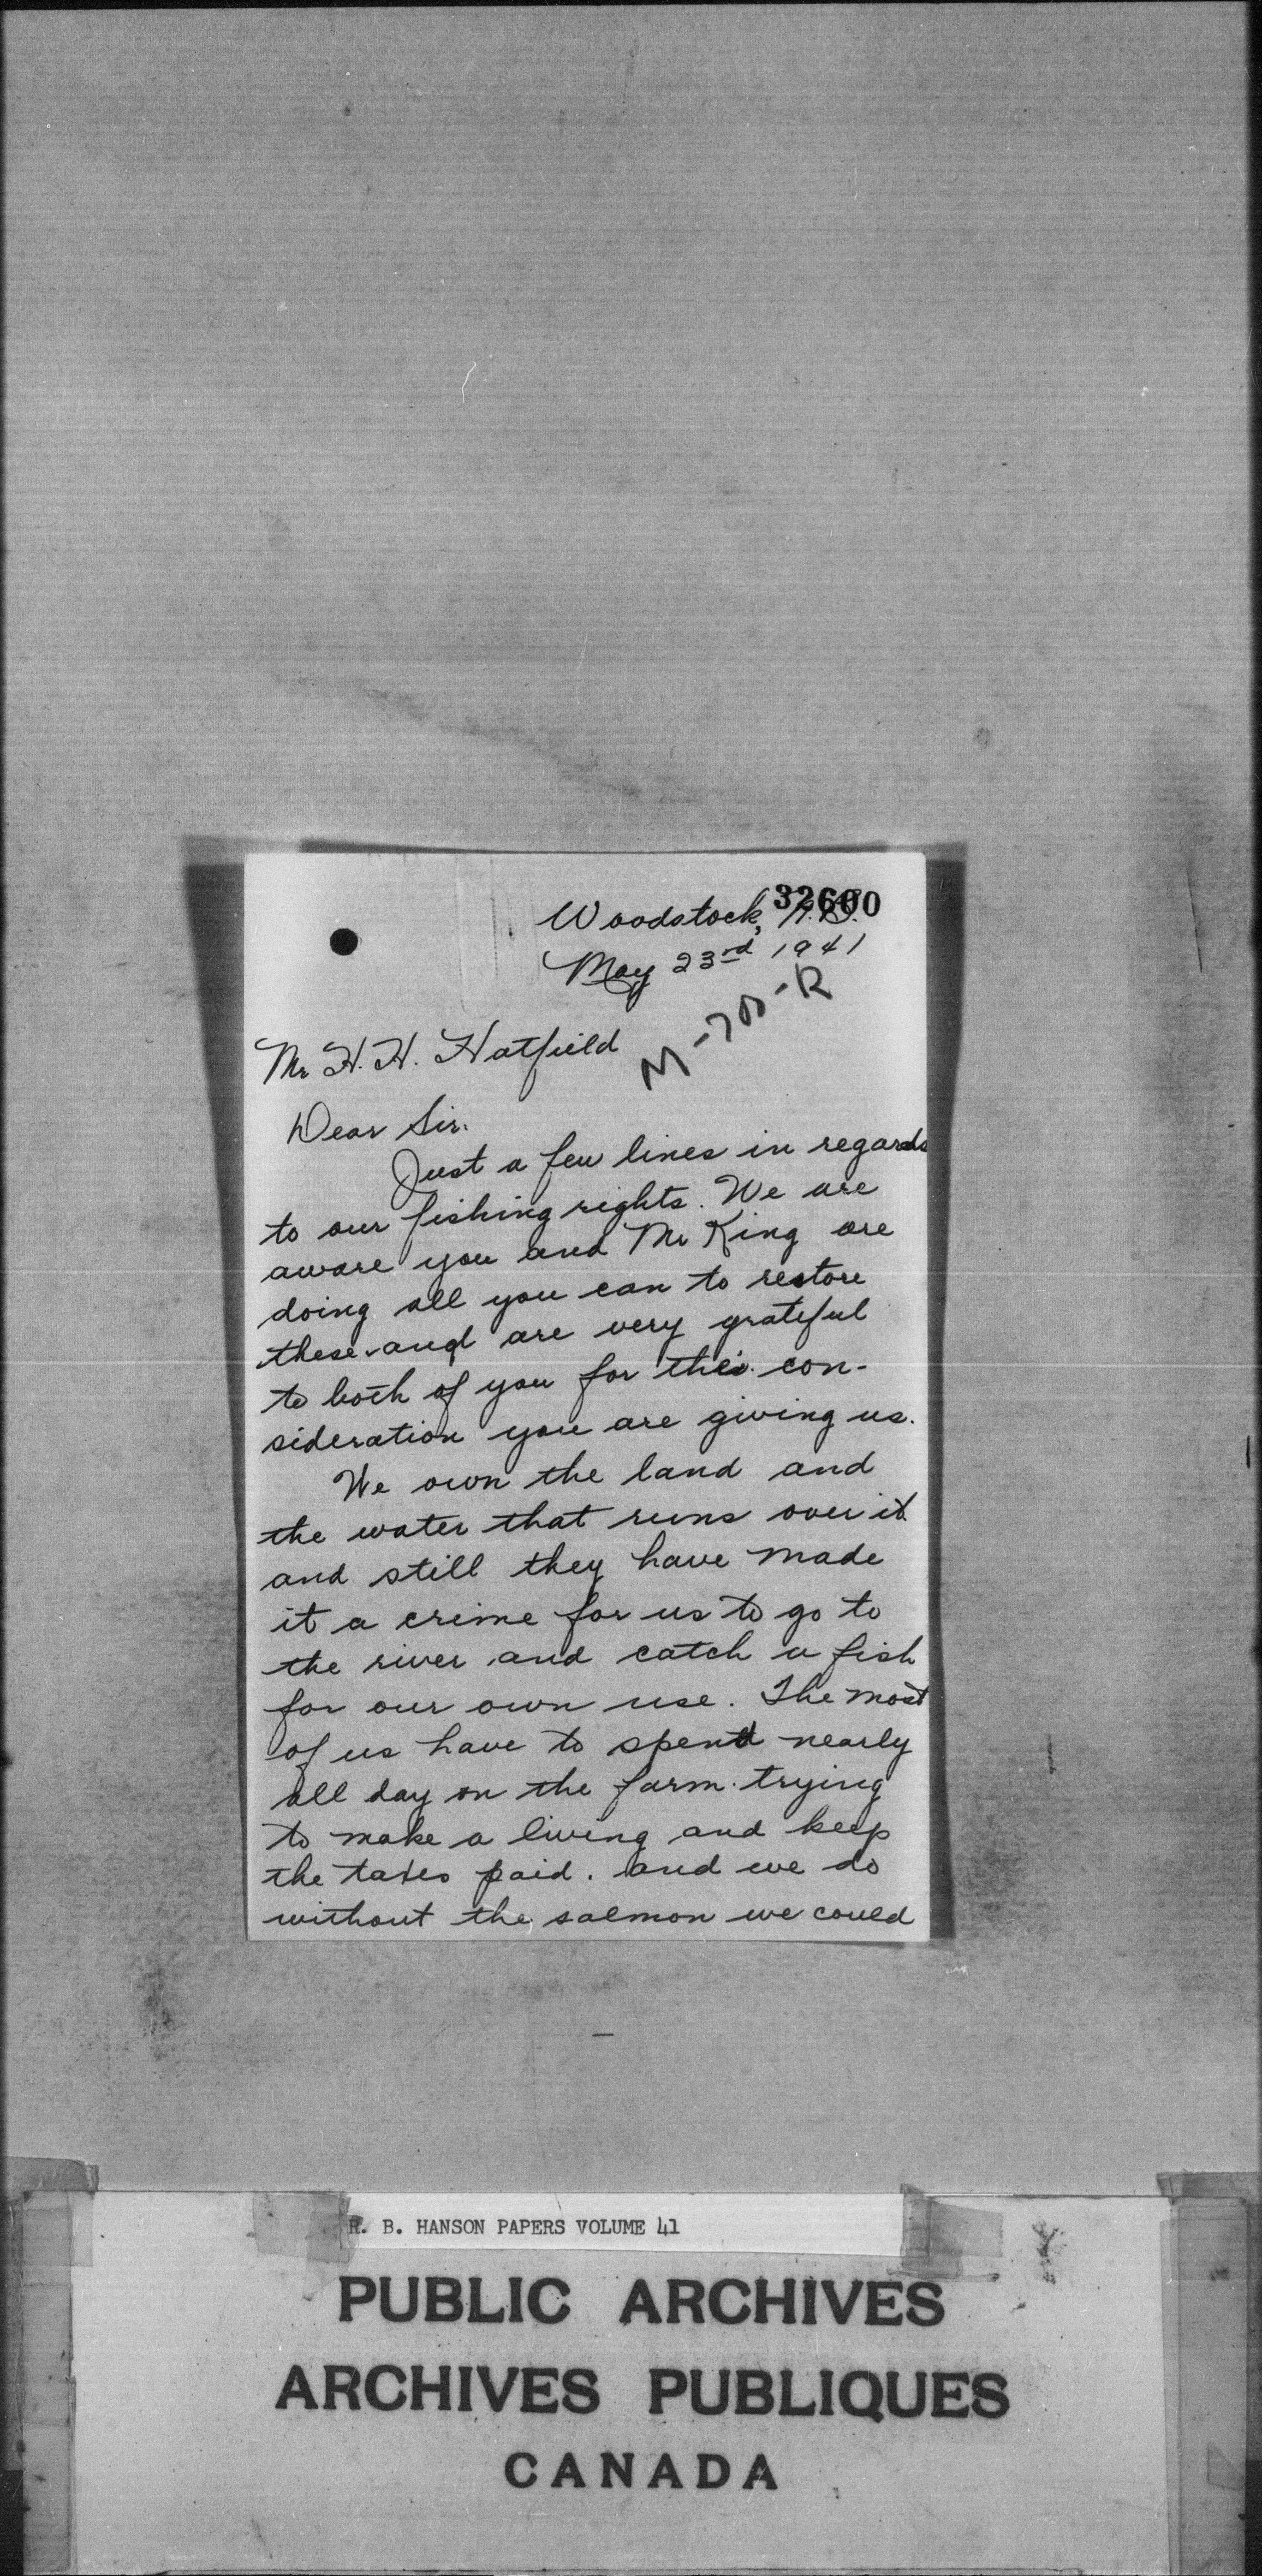 32600
Woodstock, N.B.
May 23rd 1941
M-700-R
Mr H. H. Hatfield
Dear Sir.
Just a few lines in regards
to our fishing rights. We are
aware you and Mr King are
doing all you can to restore
these and are very grateful
to both of you for the con-
sideration you are giving us.
We own the land and
the water that runs over it
and still they have made
it a crime for us to go to
the river and catch a fish
for our own use. The most
of us have to spend nearly
all day on the farm trying
to make a living and keep
the taxes paid. and we do
without the salmon we could
R. B. HANSON PAPERS VOLUME 41
PUBLIC ARCHIVES
ARCHIVES PUBLIQUES
CANADA